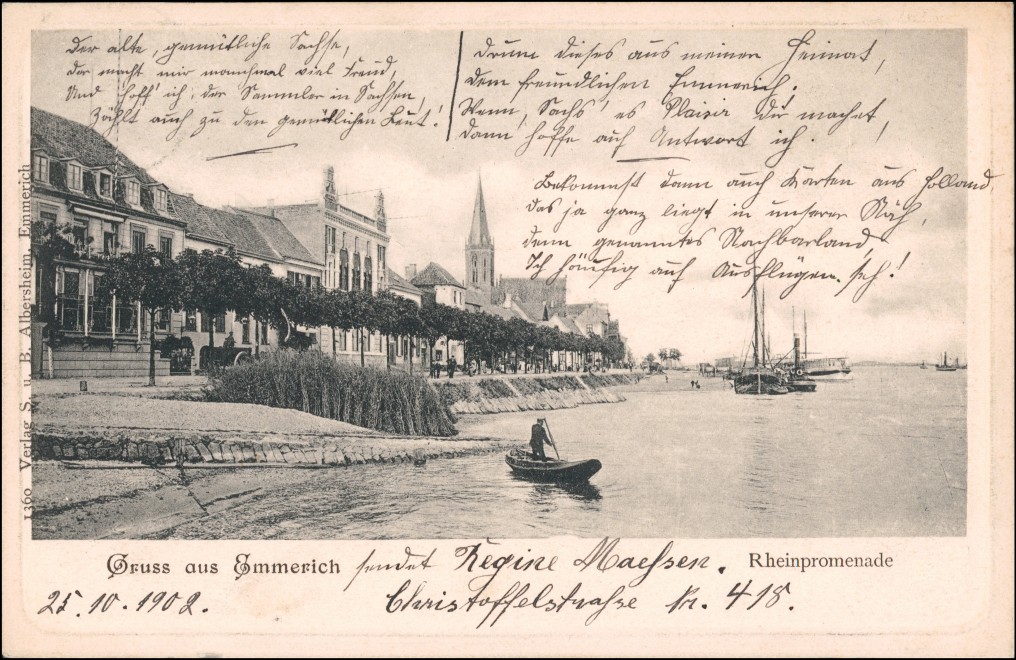 Der alte, gemütliche Sachse,
der macht mir manchmal viel Freud,
Und hoff' ich, der Sammler in Sachsen,
Zählt auch zu den gemütlichen Leut!
Drum dieses aus meiner Heimat,
dem freundlichen Emmerich.
Wenn, Sachs', es Plaisir Dir machet,
Dann hoffe auf Antwort ich.
Bekommst dann auch Karten aus Holland,
das ja ganz liegt in unserer Näh,
denn genanntes Nachbarland
Ich häufig auf Ausflügen seh!
1360 Verlag S. u. B. Albersheim, Emmerich
Gruss aus Emmerich sendet Regine Maessen.
Rheinpromenade
25.10.1902.
Christoffelstrasse Nr. 418.